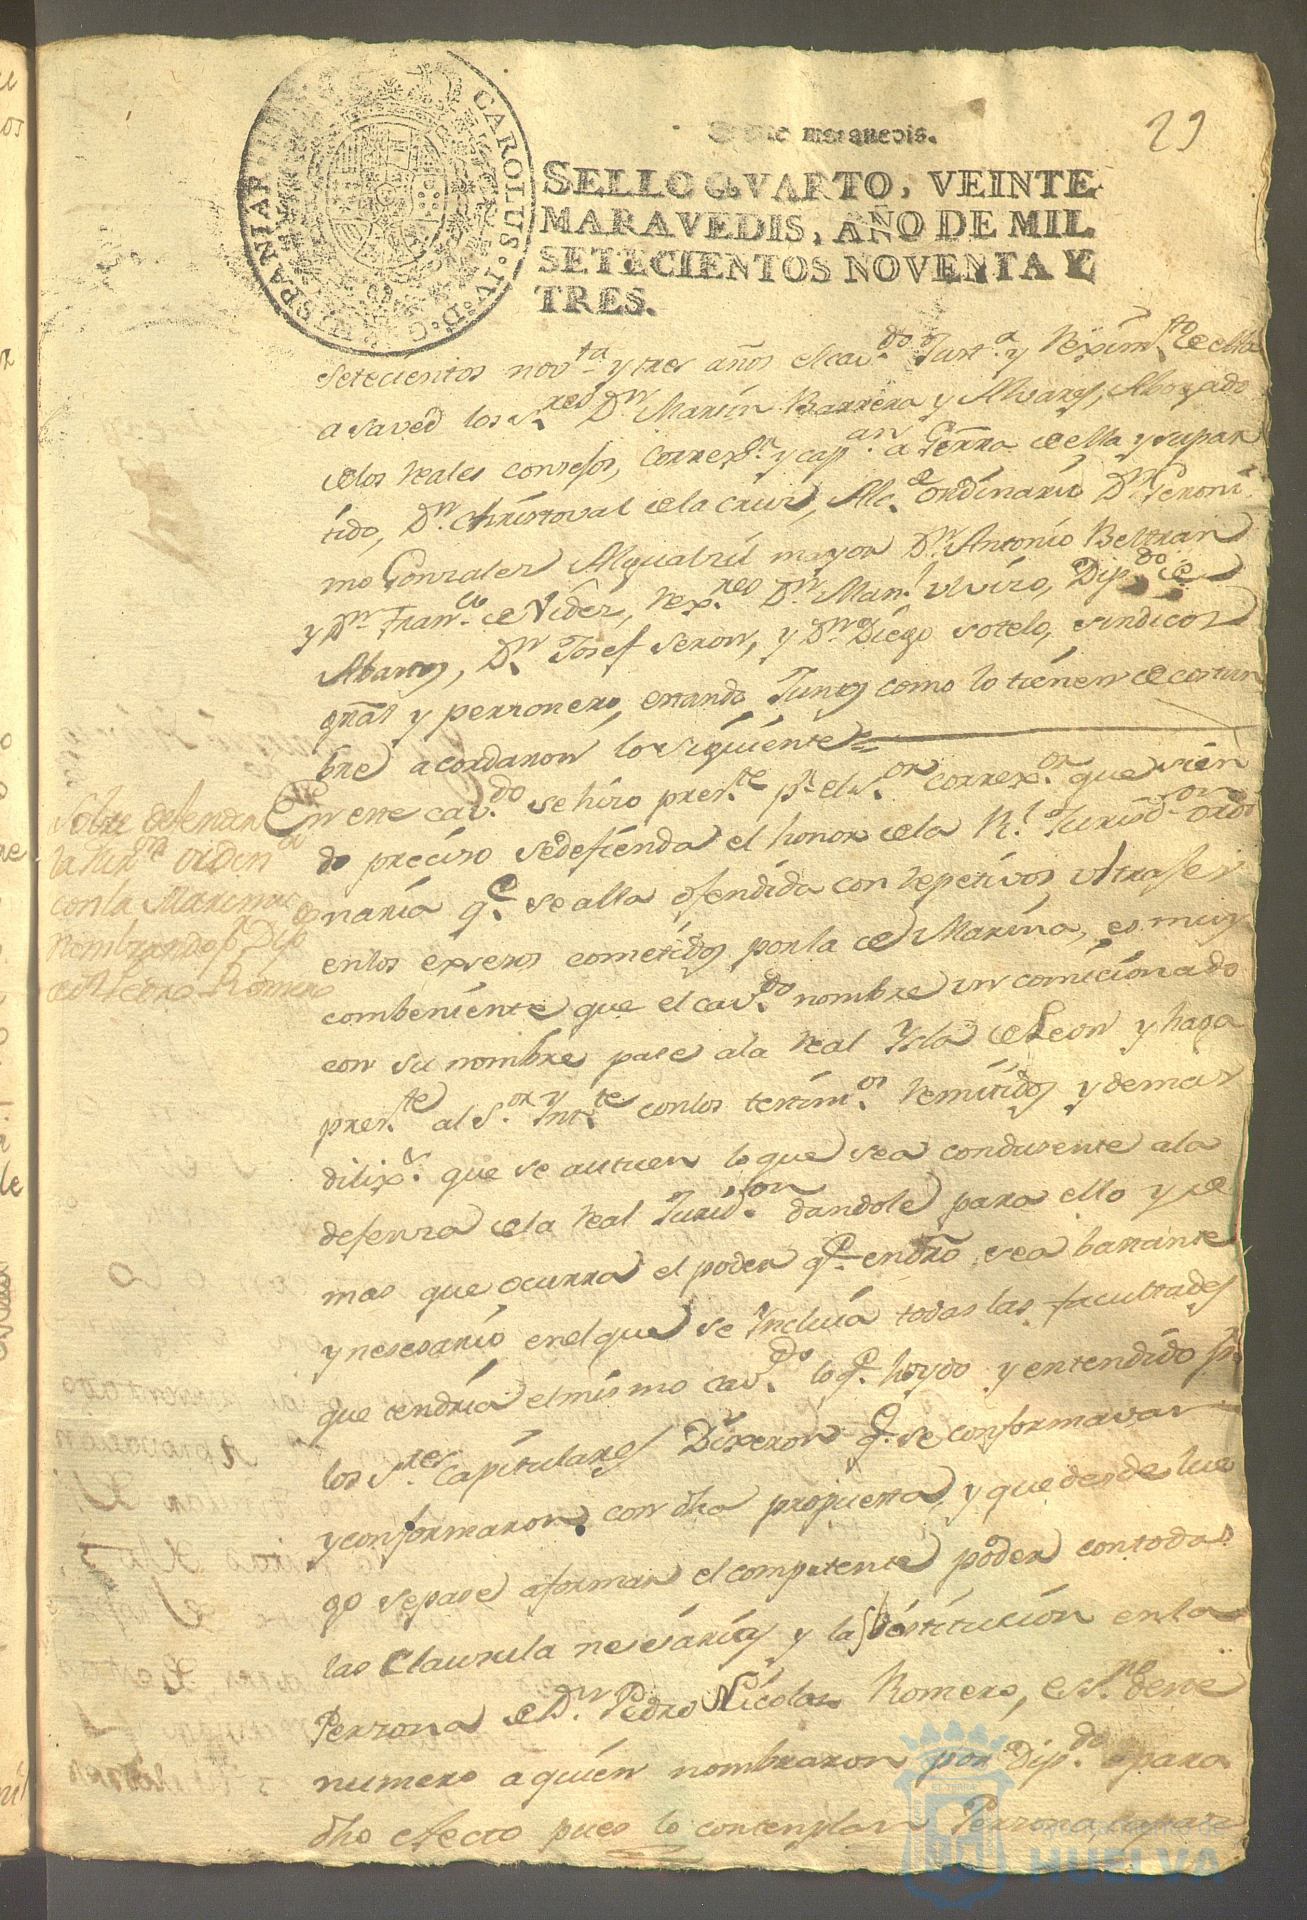 29
HISPANIAR. REX
CAROLUS. IV. D. G.
maravedis.
SELLO QVARTO, VEINTE
MARAVEDIS, AÑO DE MIL
SETECIENTOS NOVENTA Y
TRES.
setecientos novta y tres años el cavdo Justa y Reximto de ella
a saver los Sres Dn Martin Barrera y Alvarez, Abogado
de los reales consejos, Correxor y capan a Gerra de ella y su par
tido, Dn Christoval de la Cruz, Alce ordinario Dn Geroni
mo Gonzalez Alguasil mayor Dn Antonio Beltran
y Dn Franco de Videz, Rexres Dn Manl Viviro, Dipdo de
Abastos, Dn Josef Seron, y Dn Diego Sotelo, sindicos
gral y perzonero, estando Juntos como lo tienen de costum
bre acordaron lo siguiente =
Sobre defender
la Jurn ordina
con la Marina
nombrando pr Dipdo
a Dn Pedro Romero
En este cavdo se hizo preste pr el Sor correxor que sien
do preciso se defienda el honor de la Rl Jurisdon ordi
naria qe se alla ofendida con repetivos ultrajes y
en los exsesos cometidos por la de Marina, es muy
combeniente que el cavdo nombre un comicionado
con su nombre pase a la Real Ysla de Leon y haga
preste al Sor Ynte con los testimos remitidos y demas
dilixs que se actuen lo que sea condusente a la
defenza de la Real Jurison dandole para ello y de
mas que ocurra el poder qe en dro sea bastante
y nesesario en el que se Incluia todas las facultades
que tendria el mismo cavdo lo qe hoydo y entendido pr
los Sres Capitulares Dixeron qe se conformavan
y conformaron con dha propuesta, y que desde lue
go se pase a formar el competente poder con todas
las clausula nesesarias y la sostitucion en la
Perzona de Dn Pedro Nicolas Romero, Esno deste
numero a quien nombraron por Dipdo para
dho efecto pues lo contemplan Perzona
Ayuntamiento de
HUELVA